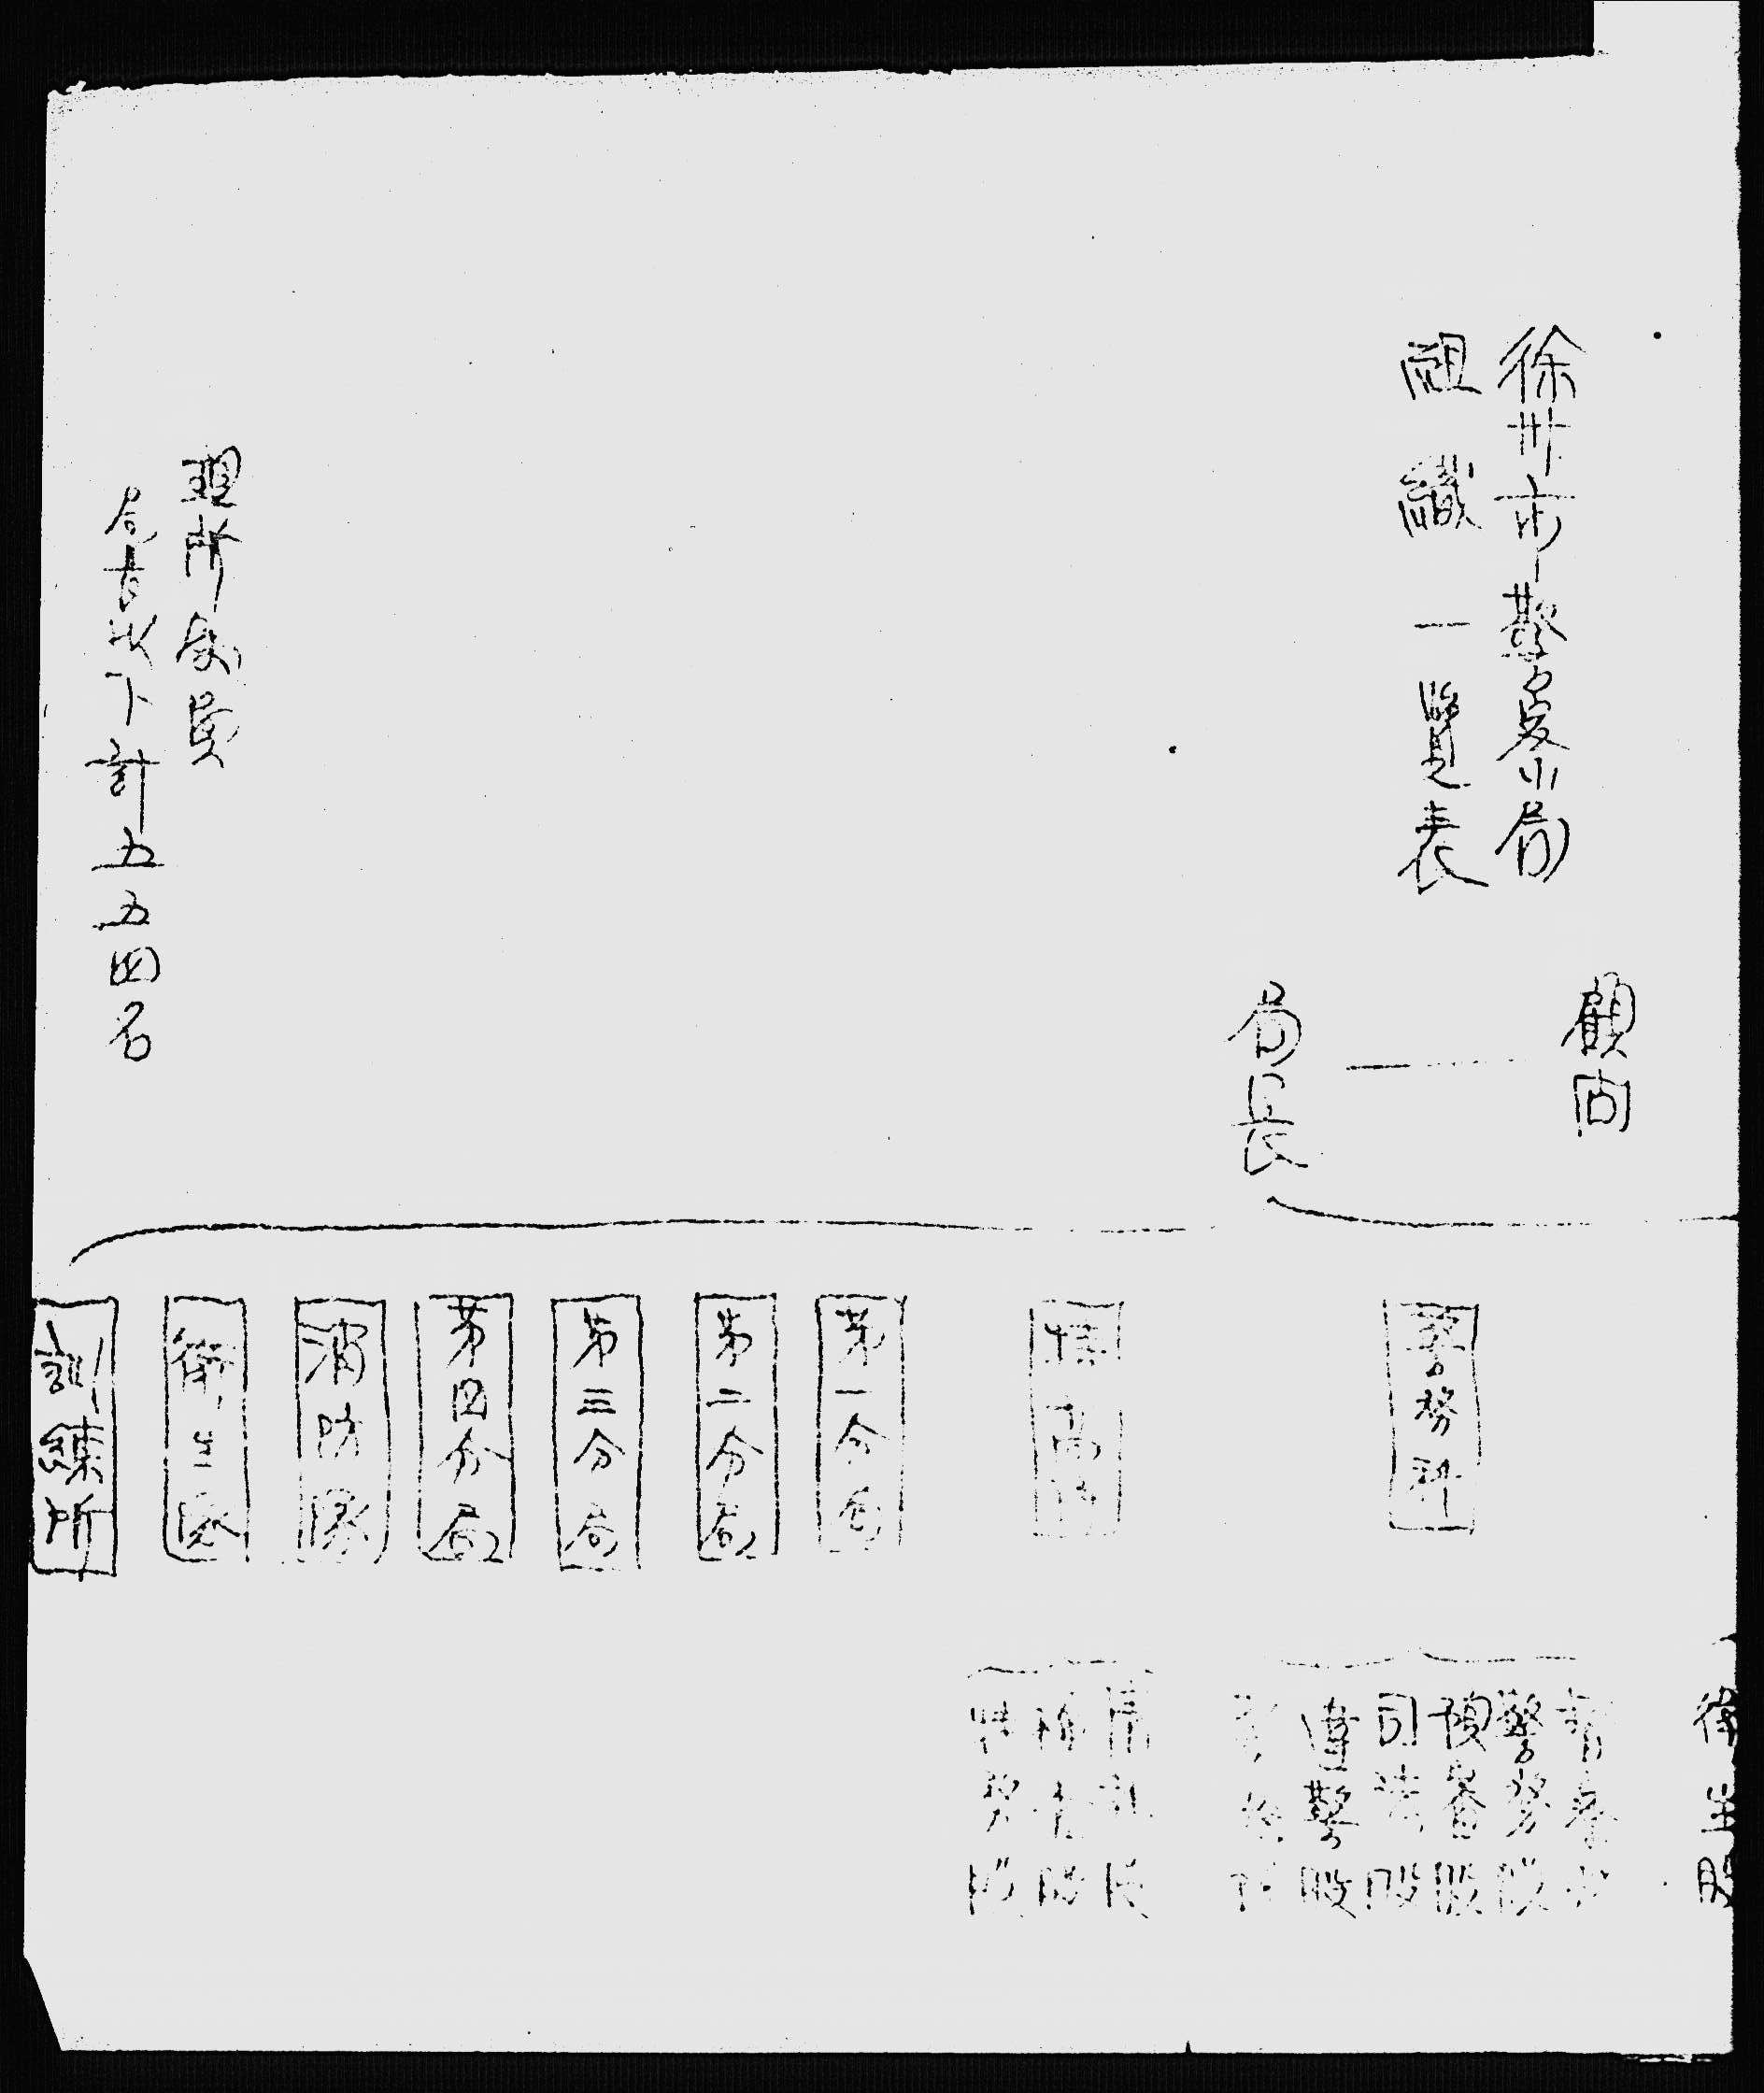 徐州市警察局
組織一覽表
顧問
局長
警務科
特高科
第一分局
第二分局
第三分局
第四分局
消防隊
衛生隊
訓練所
督察
警務股
保安股
司法股
違警股
情報股
檢查股
特務股
現所銓員
局長以下計五五四名